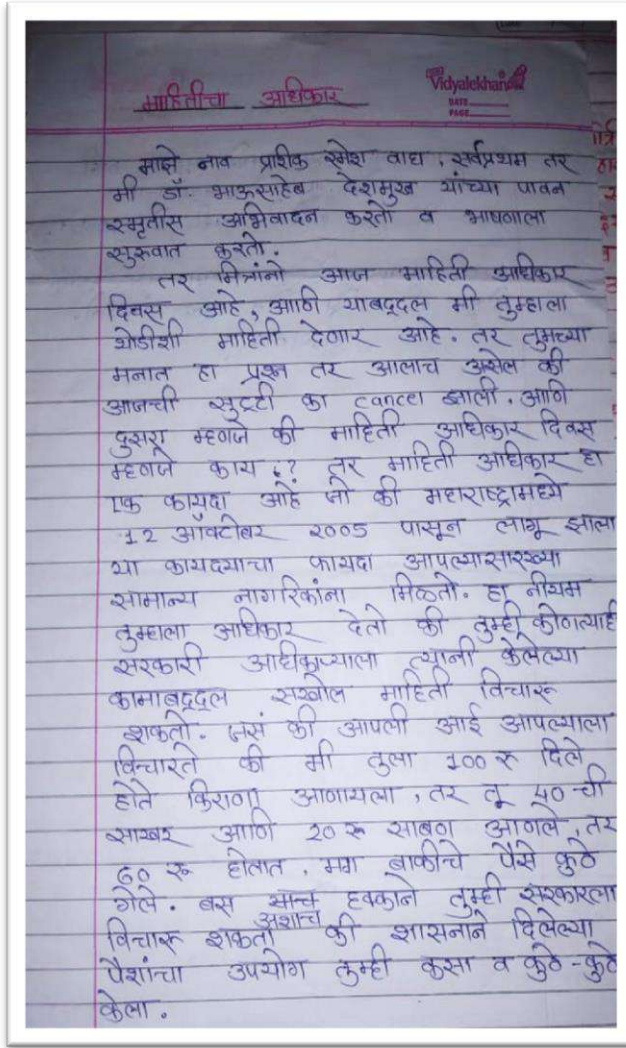 Vidyalekhan
DATE
PAGE
माहितीचा अधिकार
माझे नाव प्राशिक रमेश वाघ, सर्वप्रथम तर
मी डॉ. भाऊसाहेब देशमुख यांच्या पावन
स्मृतीस अभिवादन करतो व भाषणाला
सुरुवात करतो.
तर मित्रांनो आज माहिती अधिकार
दिवस आहे, आणि याबद्दल मी तुम्हाला
थोडीशी माहिती देणार आहे. तर तुमच्या
मनात हा प्रश्न तर आलाच असेल की
आजची सुट्टी का cancel झाली. आणि
दुसरा म्हणजे की माहिती अधिकार दिवस
म्हणजे काय ?? तर माहिती अधिकार हा
एक कायदा आहे जो की महाराष्ट्रामध्ये
12 ऑक्टोबर 2005 पासून लागू झाला
या कायद्याचा फायदा आपल्यासारख्या
सामान्य नागरिकांना मिळतो. हा नीयम
तुम्हाला अधिकार देतो की तुम्ही कोणत्याही
सरकारी अधीकाऱ्याला त्यानी केलेल्या
कामाबद्दल सखोल माहिती विचारू
शकतो. जसं की आपली आई आपल्याला
विचारते की मी तुला 100 रु दिले
होते किराणा आणायला, तर तू 40-ची
साखर आणि 20 रू साबण आणले, तर
60 रू होतात. मग बाकीचे पैसे कुठे
गेले. बस अशाच हक्काने तुम्ही सरकारला
विचारू शकता की शासनाने दिलेल्या
पैशांचा उपयोग तुम्ही कसा व कुठे-कुठे
केला.